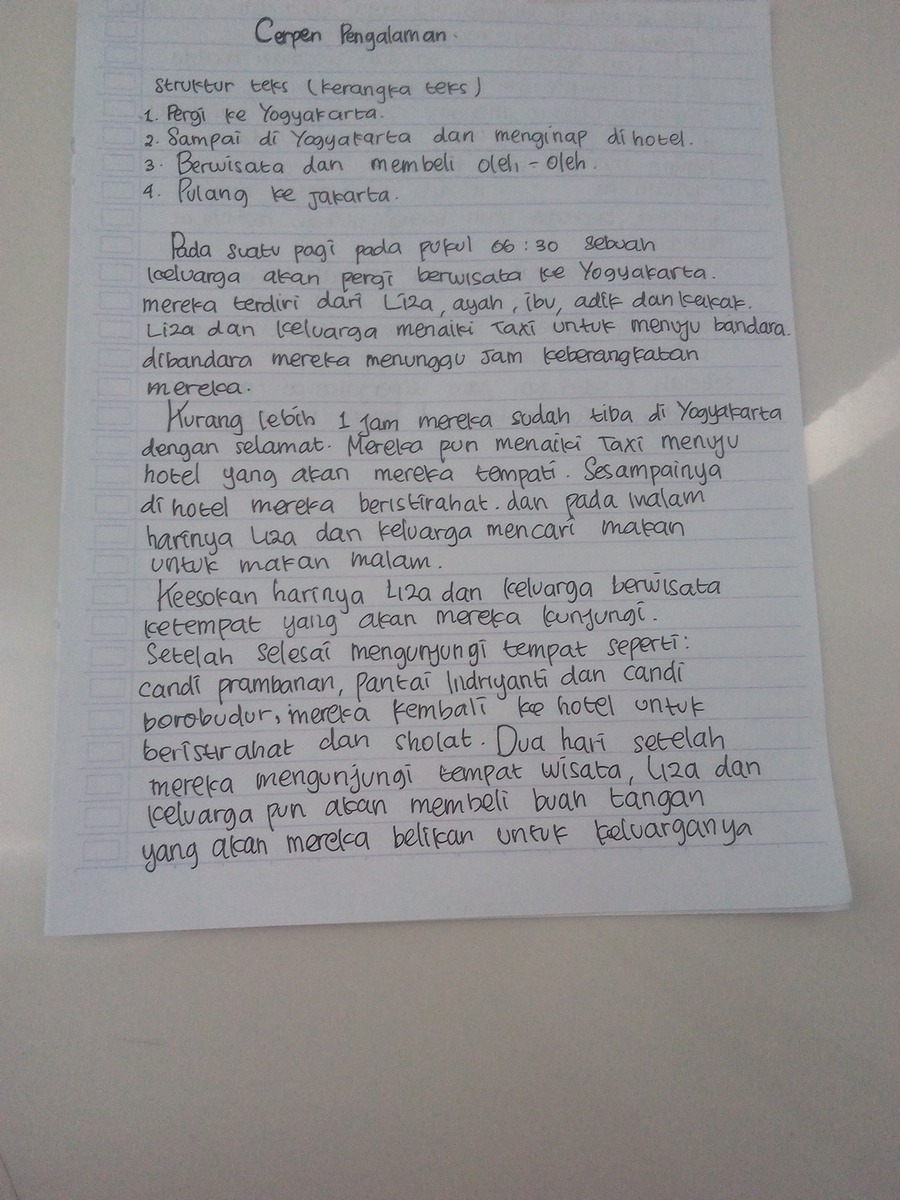 Cerpen Pengalaman.
Struktur teks (kerangka teks)
1. Pergi ke Yogyakarta.
2. Sampai di Yogyakarta dan menginap di hotel.
3. Berwisata dan membeli oleh-oleh.
4. Pulang ke jakarta.
Pada suatu pagi pada pukul 06:30 sebuah
keluarga akan pergi berwisata ke Yogyakarta.
mereka terdiri dari Liza, ayah, ibu, adik dan kakak.
Liza dan keluarga menaiki Taxi untuk menuju bandara.
dibandara mereka menunggu Jam keberangkatan
mereka.
Kurang lebih 1 Jam mereka sudah tiba di Yogyakarta
dengan selamat. Mereka pun menaiki Taxi menuju
hotel yang akan mereka tempati. Sesampainya
di hotel mereka beristirahat. dan pada malam
harinya Liza dan keluarga mencari makan
untuk makan malam.
Keesokan harinya Liza dan keluarga berwisata
ketempat yang akan mereka kunjungi.
Setelah selesai mengunjungi tempat seperti:
candi prambanan, pantai Indriyanti dan candi
borobudur, mereka kembali ke hotel untuk
beristirahat dan sholat. Dua hari setelah
mereka mengunjungi tempat wisata, Liza dan
keluarga pun akan membeli buah tangan
yang akan mereka belikan untuk keluarganya